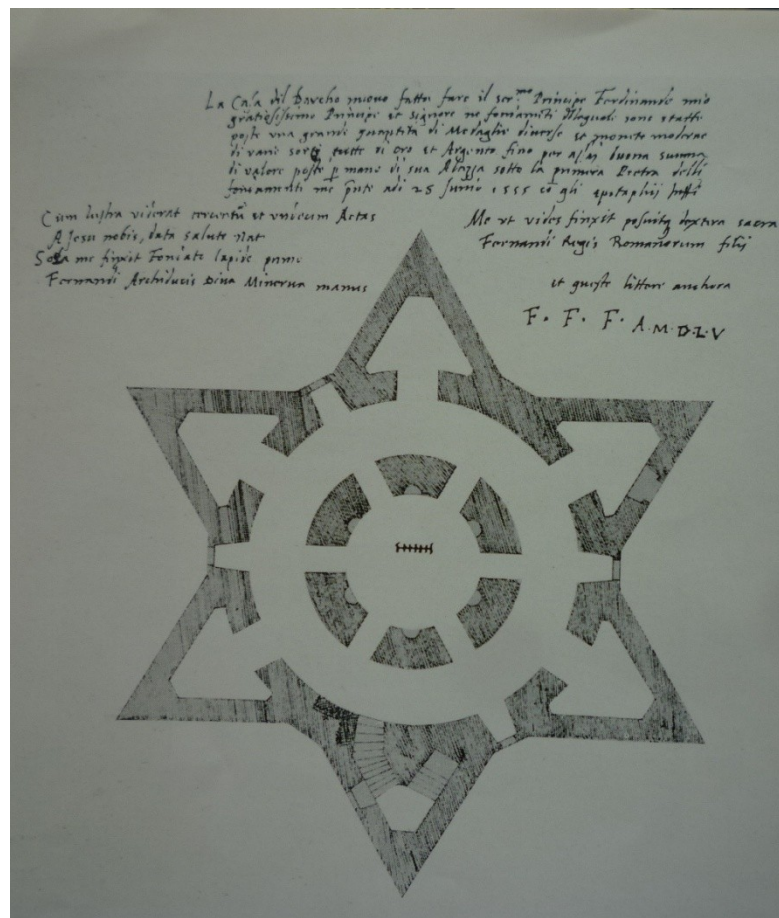 La Casa dil Barcho nuovo fatta fare il ser.mo Principe Ferdinando mio
gratiosissimo Principe et signore ne fondamenti dlquale sono statte
poste una grande quantità di Medaglie diverse et monete moderne
di varie sorte tutte di oro et Argento fino per assai buona summa
di valore poste p mano di sua Altezza sotto la prima Pietra delli
fondamenti me pnte adi 28 Junio 1555 cō gli epitaphii
Cum lustra viderat et undecim Aetas
A Jesu nobis, data salute
me finxit lapide
Fernandi Archiducis Diva Minerva manus
Me ut vides finxit dextera sacra
Fernandi Regis Romanorum filii
et queste littere anchora
F. F. F. A. M. D. L. V